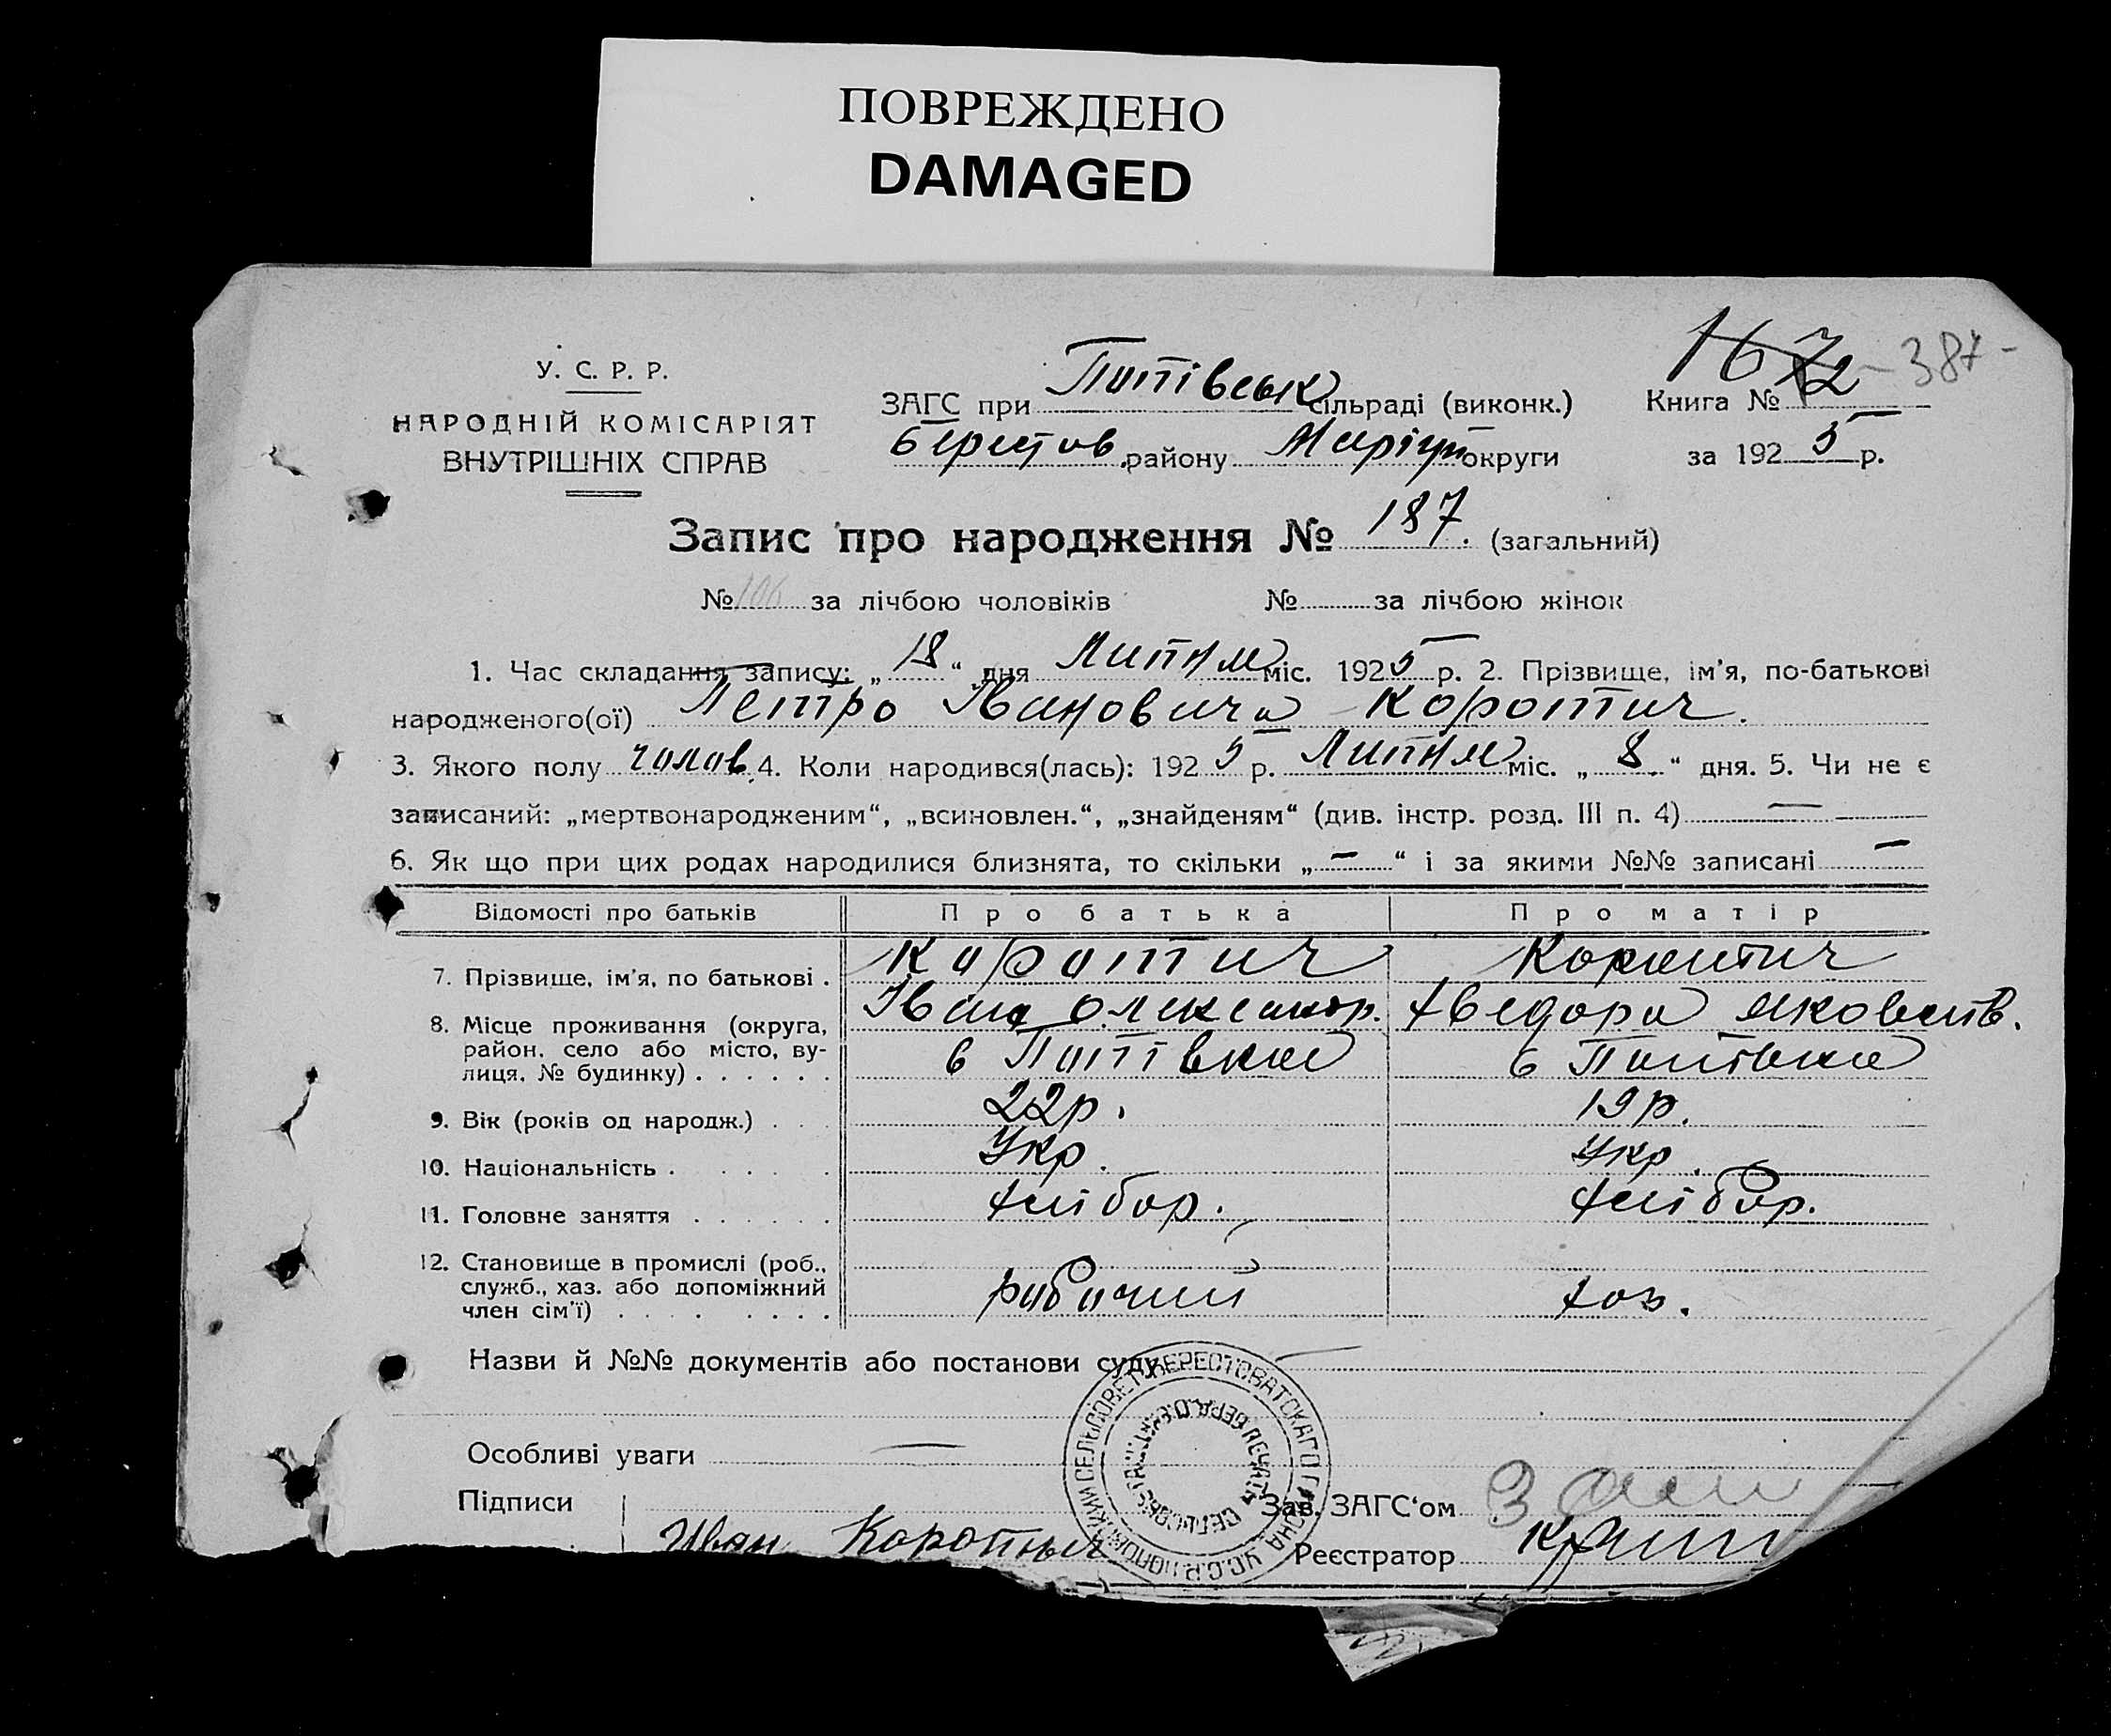 ПОВРЕЖДЕНО
DAMAGED
У. С. Р. Р.
НАРОДНІЙ КОМІСАРІЯТ
ВНУТРІШНІХ СПРАВ
ЗАГС при Попівськ сільраді (виконк.)
Берестов. району Маріуп округи
Книга № 1672 - 387 -
за 1925 р.
Запис про народження № 187. (загальний)
№ 106 за лічбою чоловіків № за лічбою жінок
1. Час складання запису: „ 18 “ дня Липня міс. 1925 р. 2. Прізвище, ім’я, по-батькові
народженого(ої) Петро Іванович Коротич.
3. Якого полу чолов. 4. Коли народився(лась): 1925 р. Липня міс. „ 8 “ дня. 5. Чи не є
записаний: „мертвонародженим“, „всиновлен.“, „знайденям“ (див. інстр. розд. III п. 4) —
6. Як що при цих родах народилися близнята, то скільки „ — “ і за якими №№ записані —
Відомості про батьків Про батька Про матір
7. Прізвище, ім’я, по батькові . Коротич Коротич
Іван Олександр. Хведора Яковлів.
8. Місце проживання (округа,
район, село або місто, ву-
лиця, № будинку) . . . . . . в Попівка в Попівка
9. Вік (років од народж.) . . . 22р. 19р.
10. Національність . . . . . Укр. Укр.
11. Головне заняття . . . . . . хлібор. хлібор.
12. Становище в промислі (роб.,
служб., хаз. або допоміжний
член сім’ї) . . . . . . . . рабочий хоз.
Назви й №№ документів або постанови суду —
Особливі уваги —
Підписи
Зав. ЗАГС‘ом
Иван Коротыч
Реєстратор